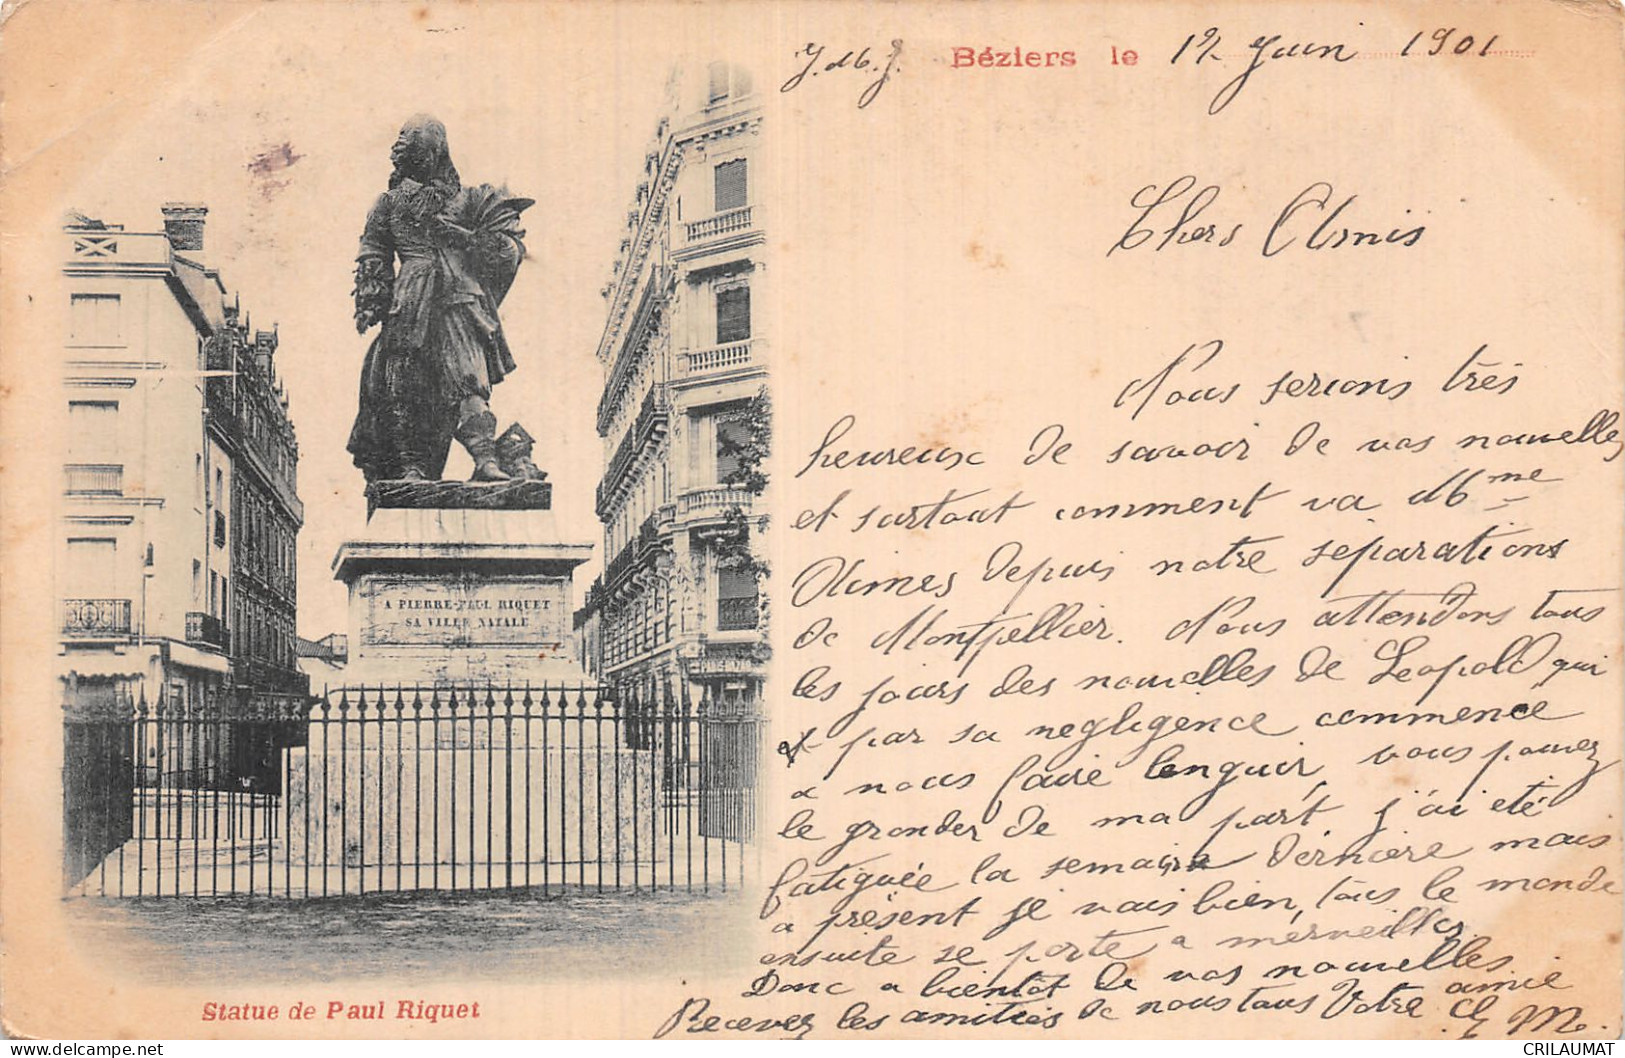 J. M. J. Béziers le 12 Juin 1901
Chers Amis
Nous serions très
heureux de savoir de vos nouvelles
et surtout comment va Mme
Nimes depuis notre séparations
de Montpellier. Nous attendons tous
les jours des nouvelles de Leopold qui
et par sa negligence commence
a nous faire languir, vous pouvez
le gronder de ma part j'ai eté
fatiguée la semaine dernière mais
a présent je vais bien, tous le monde
ensuite se porte a merveilles
Donc a bientôt de vos nouvelles
Recevez les amitiés de nous tous Votre amie
M.
A PIERRE-PAUL RIQUET
SA VILLE NATALE
PARIS-BAZAR
Statue de Paul Riquet
CRILAUMAT